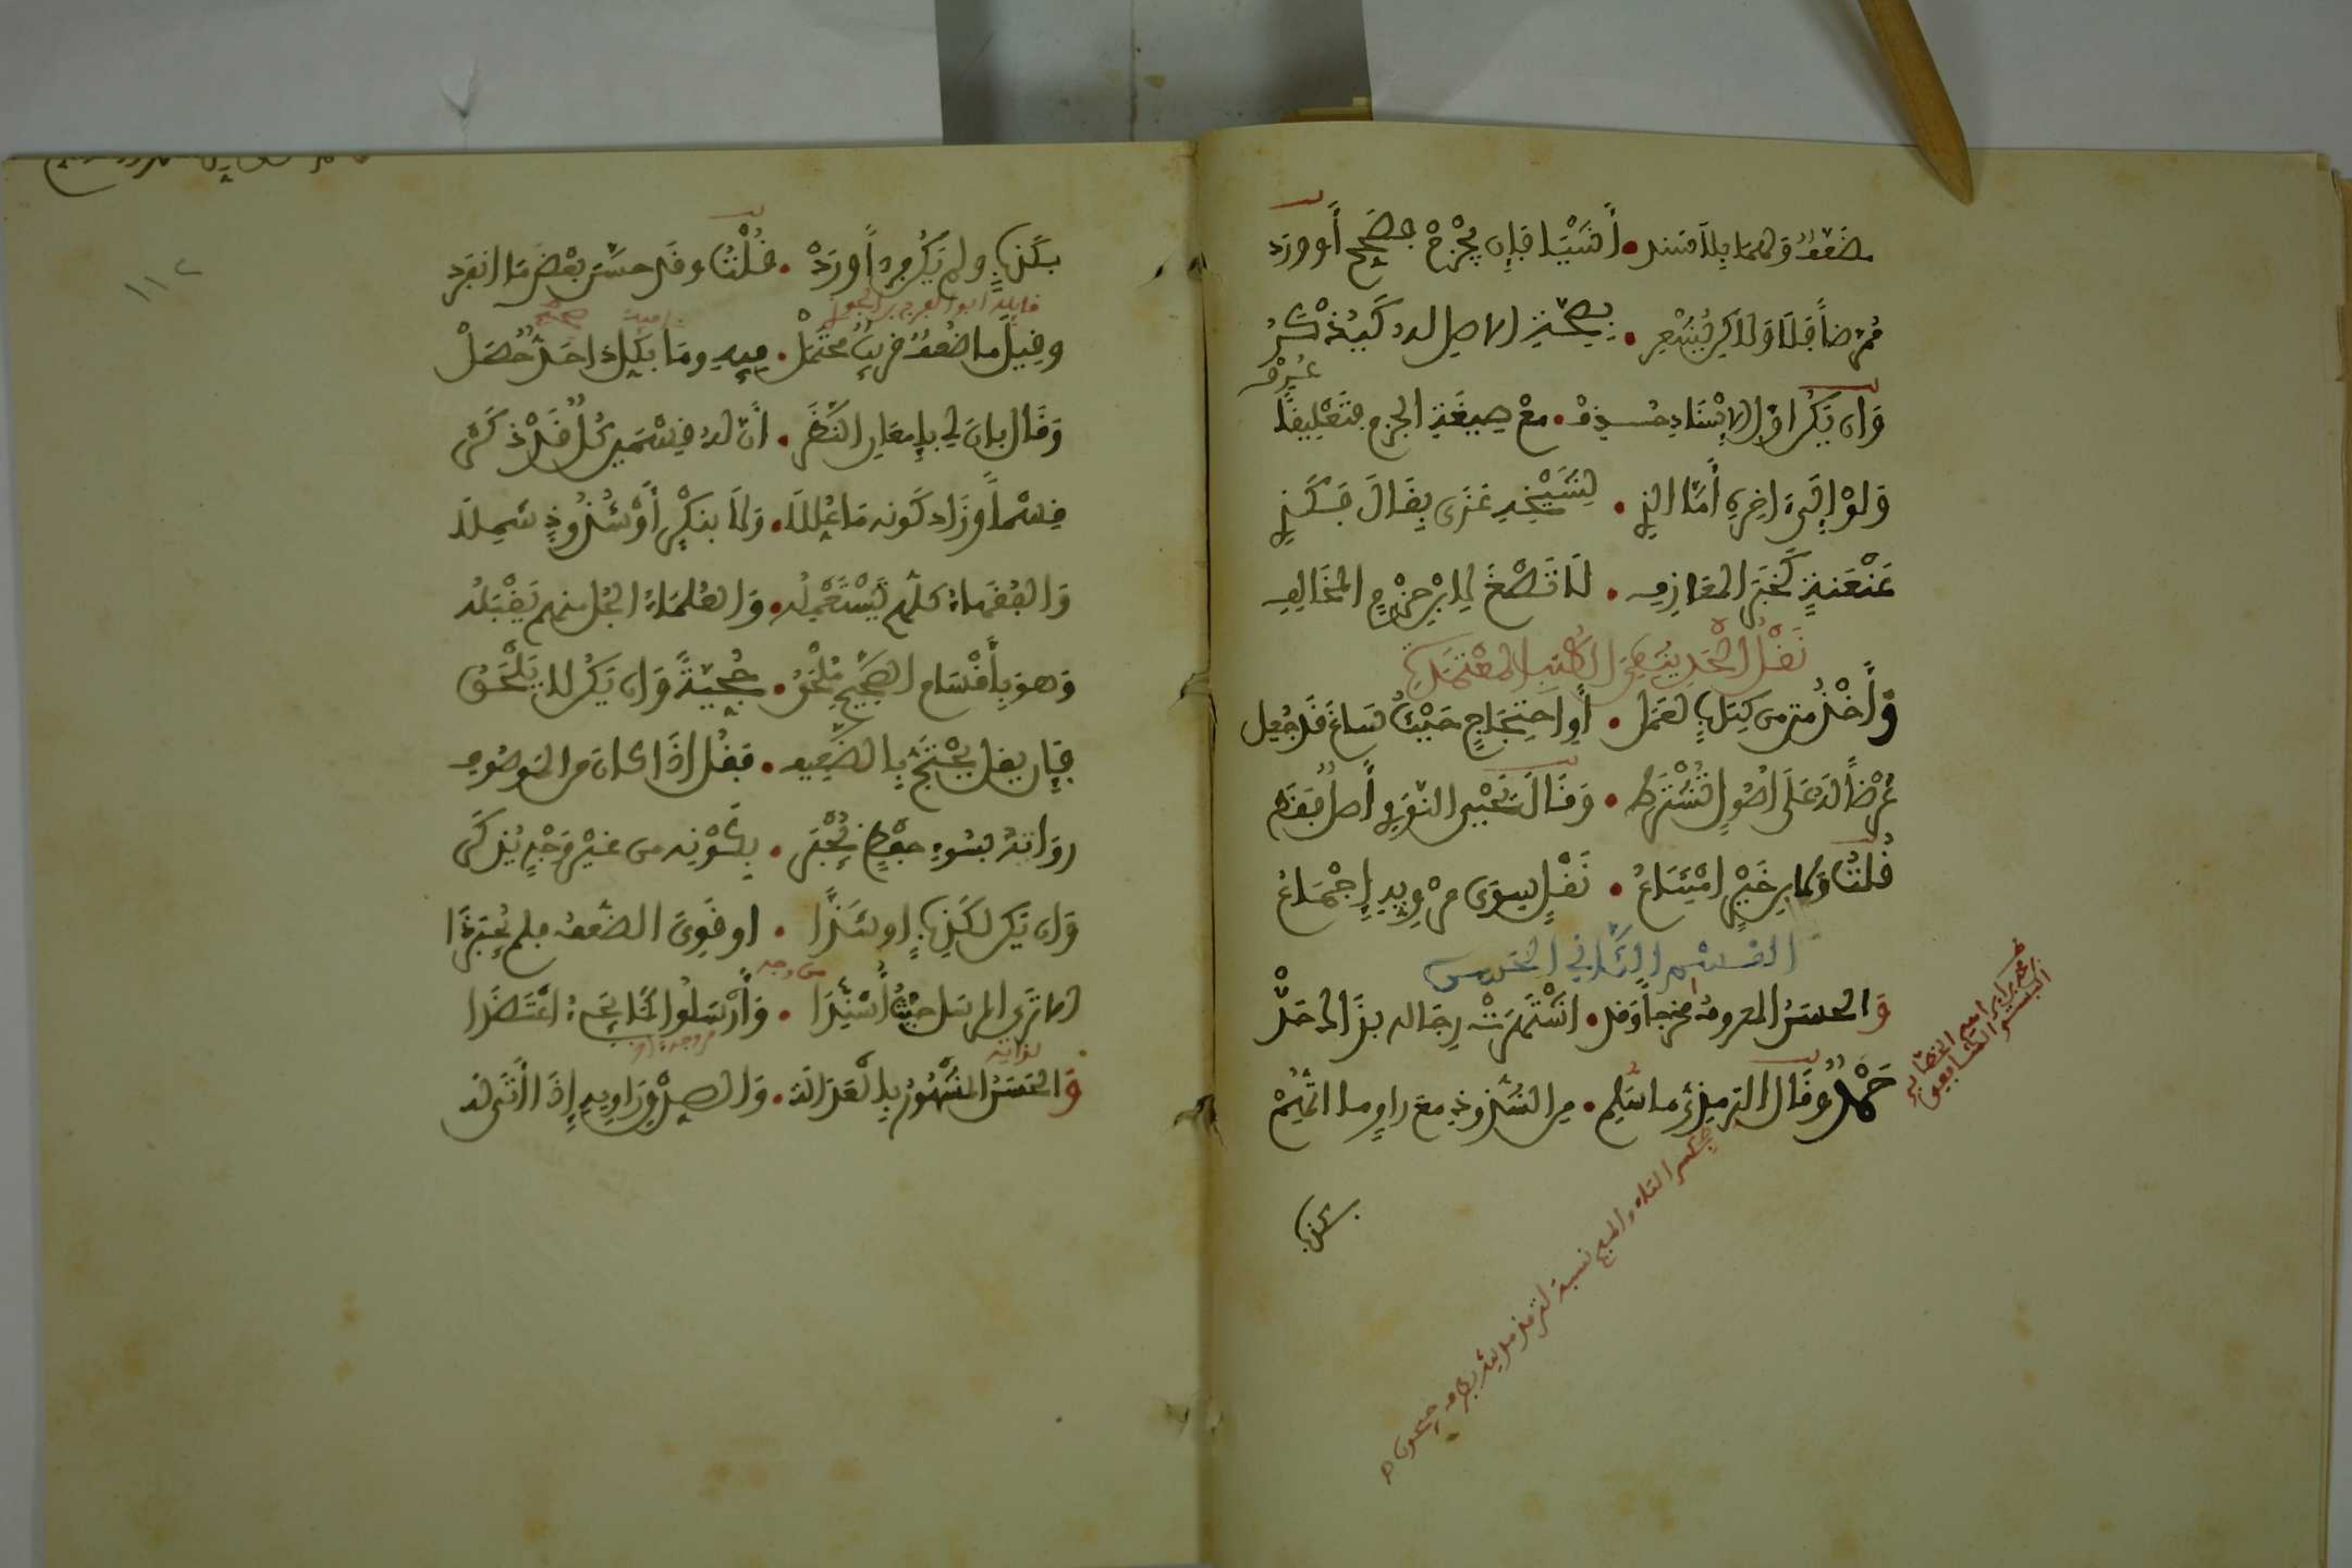 مضعف ولهما بلا سند • أشيا فإن يجزم فصحح أو ورد
ممرضا فلا ولاكن يشعر • بصحة الاصل له كيذكر
وان يكن اول الاسناد حذف • مع صيغة الجزم فتعليقا
عرف
ولو إلى ءاخره أما الذي • لشيخه عزى بقال فكذي
عنعنة كخبر المعازف • لا تصغ لابن حزم المخالف
نقل الحديث من الكتب المعتمدة
وأخذ متن من كتاب لعمل • أو احتجاج حيث ساغ قد جعل
عرضا له على اصول تشترط • وقال يحيى النووي أصل فقط
قلت ولابن خير امتناع • نقل سوى مرويه إجماع
القسم الثاني الحسن
والحسن المعروف مخرجا وقد • اشتهرت رجاله بذاك حد
حمد وقال الترمذي ما سلم • من الشذوذ مع راو ما اتهم
محمد بن ابراهيم الخطابي
البستي الشافعي
بكسر التاء والميم نسبة لترمذ مدينة بطرف جيحون
بكذب
بكذب ولم يكن فردا ورد • قلت وقد حسن بعض ما انفرد
قايله ابو الفرج بن الجوزي
وقيل ما ضعف قريب محتمل • فيه وما بكل ذا حد حصل
صحيح
وقال بان لي بإمعان النظر • ان له قسمين كل قد ذكر
قسما وزاد كونه ما عللا • ولا بنكر أو شذوذ شملا
والفقهاء كلهم يستعمله • والعلماء الجل منهم يقبله
وهو بأقسام الصحيح ملحق • حجية وان يكن لا يلحق
فإن يقل يحتج بالضعيف • فقل إذا كان من الموصوف
رواته بسوء حفظ يجبر • بكونه من غير وجه يذكر
وان يكن لكذب أو شذا • او قوي الضعف فلم يجبر ذا
الا ترى المرسل حيث أسندا • وأرسلوا كما يجيء اعتضدا
من وجه
والحسن المشهور بالعدالة • والصدق راويه إذا أتى له